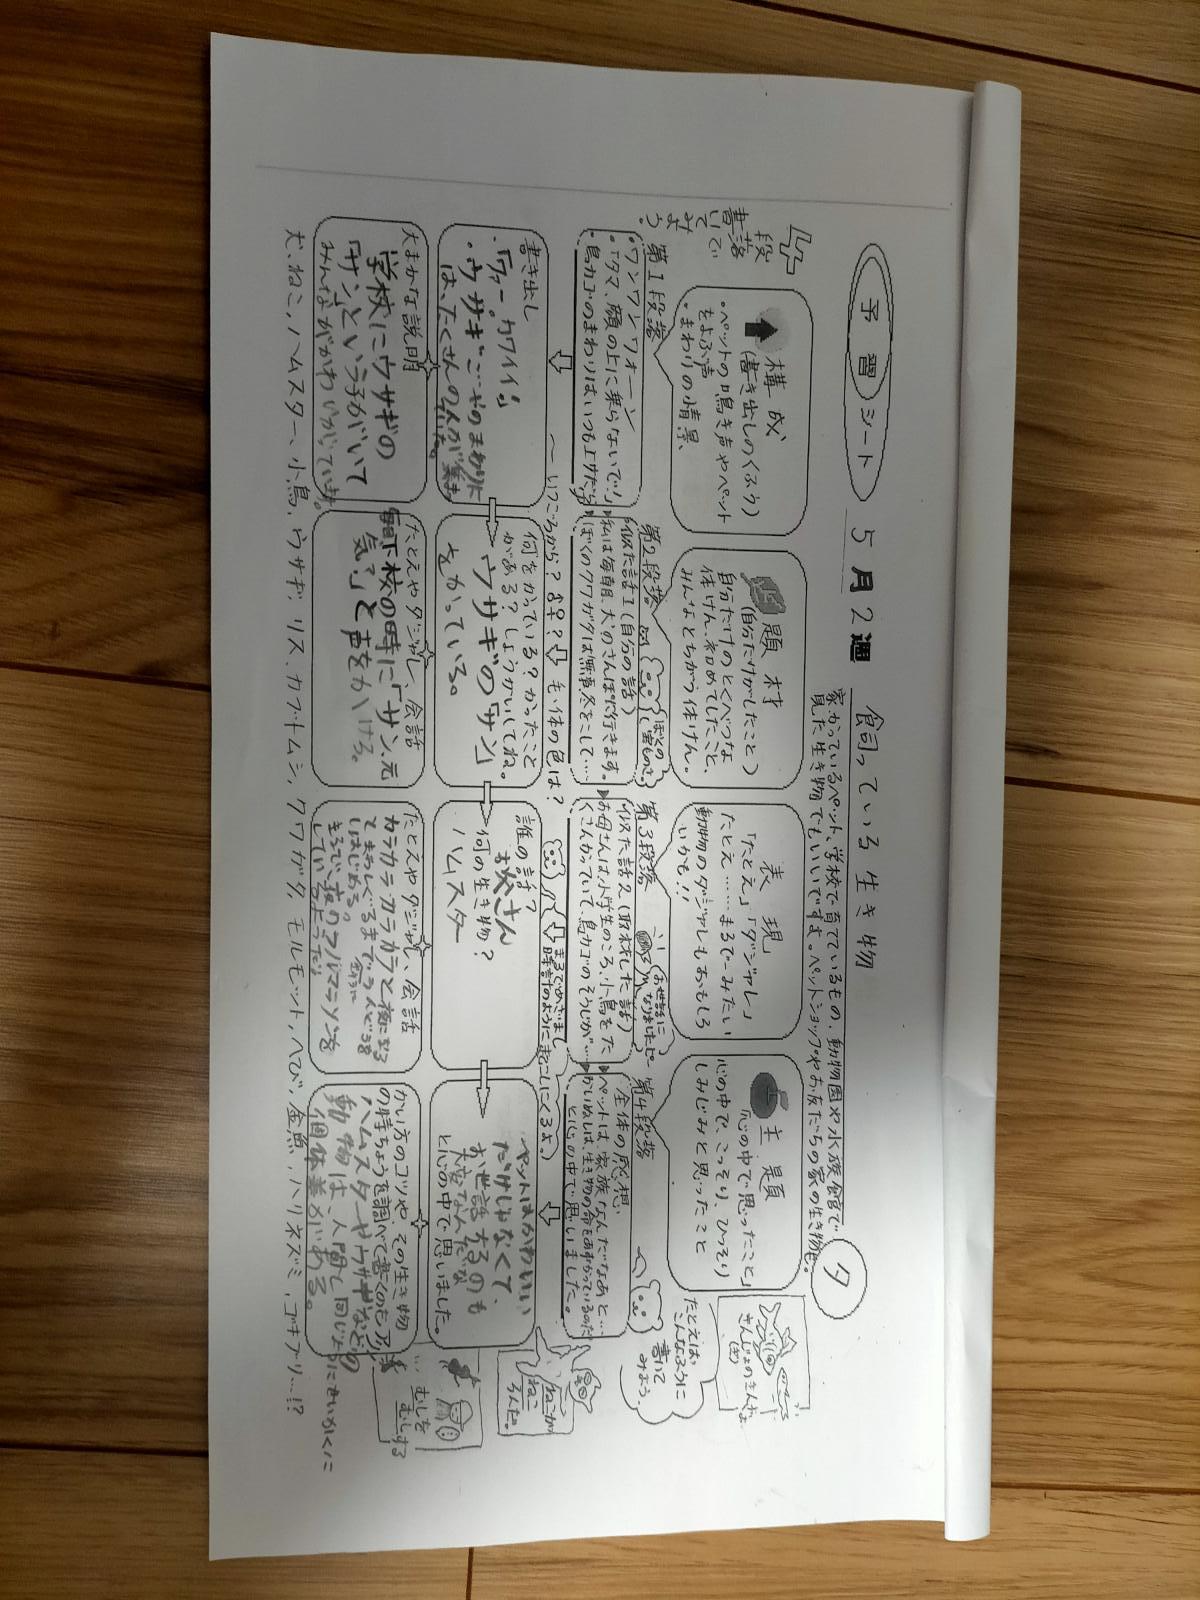 予習シート
5月2週
飼っている生き物
タ
家でかっているペット、学校で育てているもの、動物園や水族館で
見た生き物でもいいですよ。ペットショップやお友だちの家の生き物も。
4
段落
書いて
みよう。
構成
(書き出しのくふう)
・ペットの鳴き声やペット
をよぶ声
・まわりの情景
題材
(自分だけがしたこと)
自分だけのとくべつな
体けん、初めてしたこと、
みんなとちがう体けん。
表現
「たとえ」「ダジャレ」
たとえ……まるで〜みたい
動物のダジャレもおもしろ
いかも!!
主題
「心の中で思ったこと」
心の中で、こっそり、ひっそり
しみじみと思ったこと
きんじょのきんぎょ
たとえば、
こんなふうに
書いて
みよう。
第1段落
・ワンワンワオーン
・「タマ、顔の上に乗らないで!」
・鳥カゴのまわりはいつも上サだらけ
第2段落
ぼくの
宝ものさ。
似た話1(自分の話)
私は毎朝、犬のさんぽに行きます。
ぼくのクワガタは無事冬をこして…
第3段落
お世話に
なりましたピー
似た話2(取材をした話)
お母さんは小学生のころ、小鳥をた
くさんかっていて、鳥カゴのそうじが…
第4段落
全体の感想
ペットは、家族なんだなあと…
かいぬしは、生き物の命をあずかっているのだ
と心の中で思いました。
〜いつごろから?♂♀?毛、体の色は?
まるでめざまし
時計のように起こしにくるよ。
書き出し
・「ワァー。カワイイ!」
・ウサギごやのまわりに
は、たくさんの人が集ま
何をかっている?かったこと
がある?しょうかいしてね。
ウサギの「サン」
をかっている。
誰の話?
お父さん
何の生き物?
ハムスター
ペットはかわいい
だけじゃなくて、
お世話するのも
大変なんだな
と心の中で思いました。
ねこが
ねこ
ろんだ。
大まかな説明
学校にウサギの
「サン」という子がいて
みんながかわいがっています。
たとえやダジャレ、会話
下校の時に「サン、元
気?」と声をかける。
たとえやダジャレ、会話
カラカラカラカラと夜になる
とまわしぐるまでうんどうを
しはじめる。
まるで、夜のフルマラソンを
しているようだった
かい方のコツや、その生き物
の特ちょうを調べて書くのもOK
ハムスターやウサギなどの
動物は、人間と同じようにせいかくに
個体差がある。
…むしを
むしする
犬、ねこ、ハムスター、小鳥、ウサギ、リス、カブトムシ、クワガタ、モルモット、ヘビ、金魚、ハリネズミ、ゴキブリ…!?